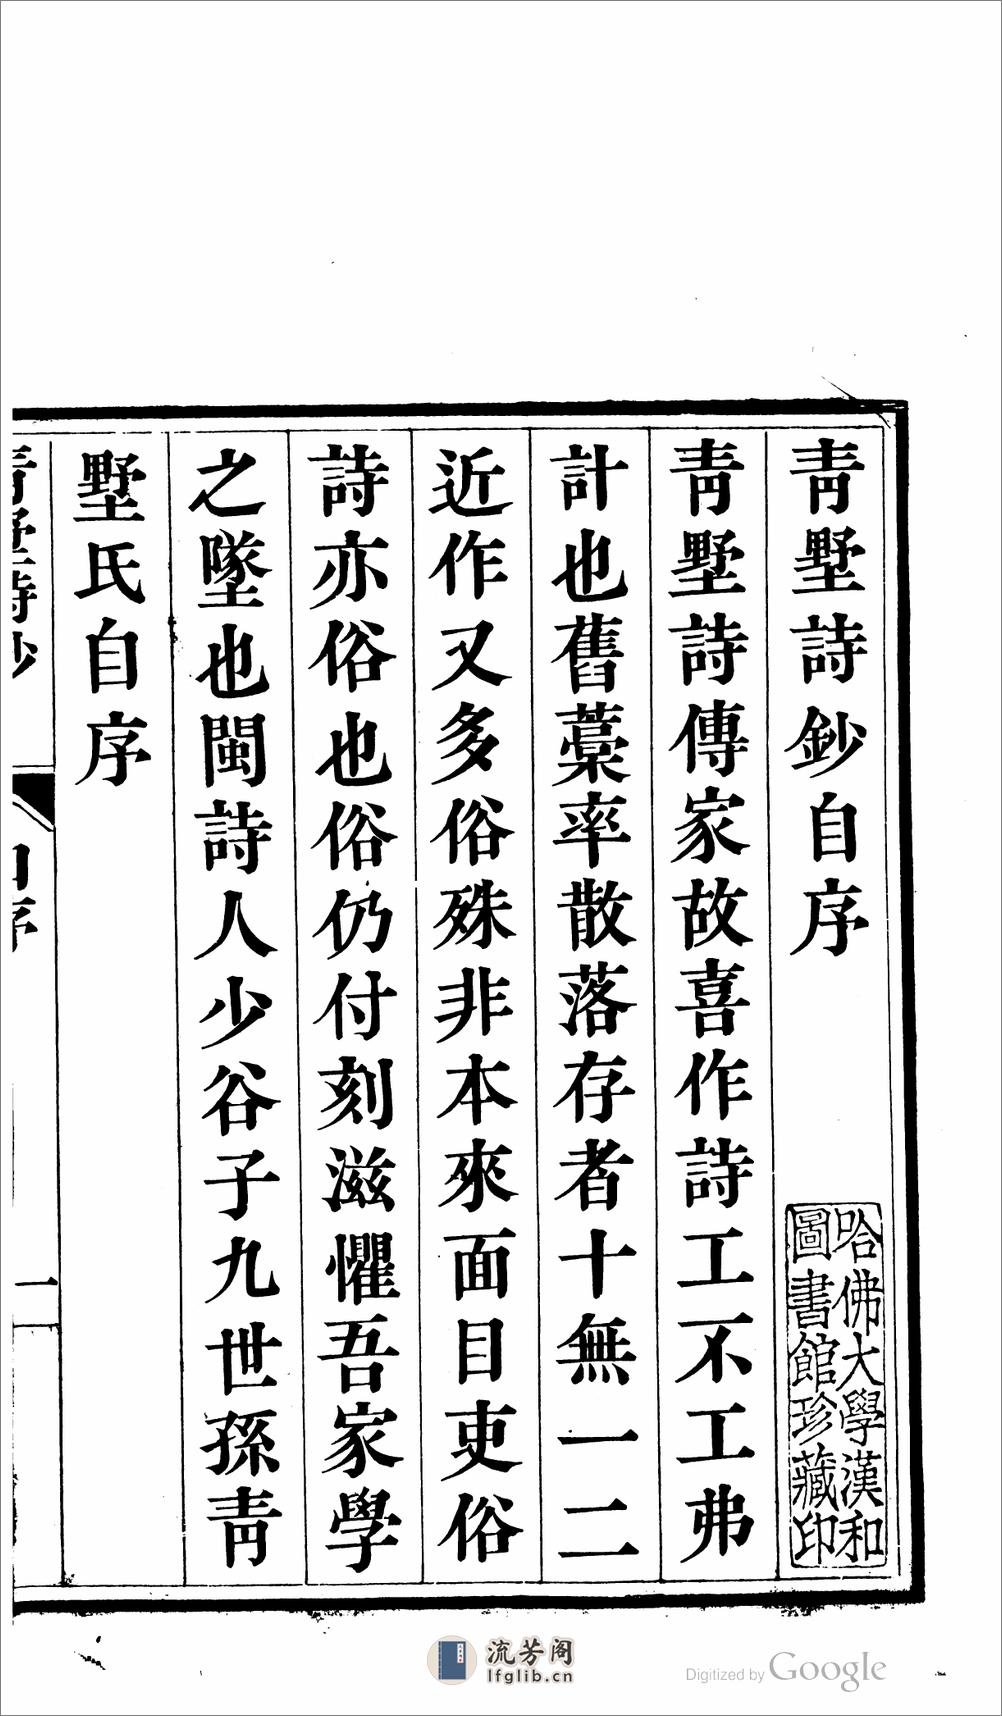 靑墅詩鈔自序
哈佛大學漢和
圖書館珍藏印
靑墅詩傳家故喜作詩工不工弗
計也舊藁率散落存者十無一二
近作又多俗殊非本來面目吏俗
詩亦俗也俗仍付刻滋懼吾家學
之墜也閩詩人少谷子九世孫靑
墅氏自序
靑墅詩鈔
自序
一
流芳阁
lfglib.cn
Digitized by Google